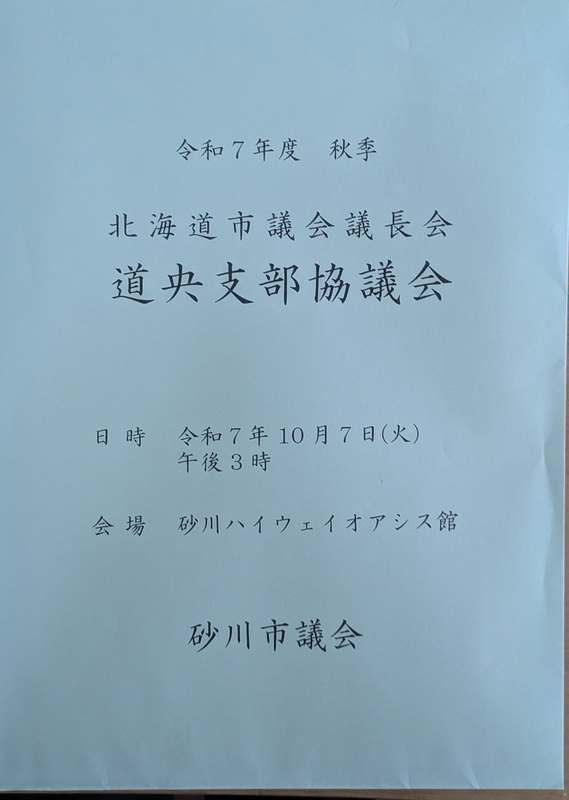 令和７年度　秋季
北海道市議会議長会
道央支部協議会
日時　令和７年 10 月７日(火)
午後３時
会場　砂川ハイウェイオアシス館
砂川市議会